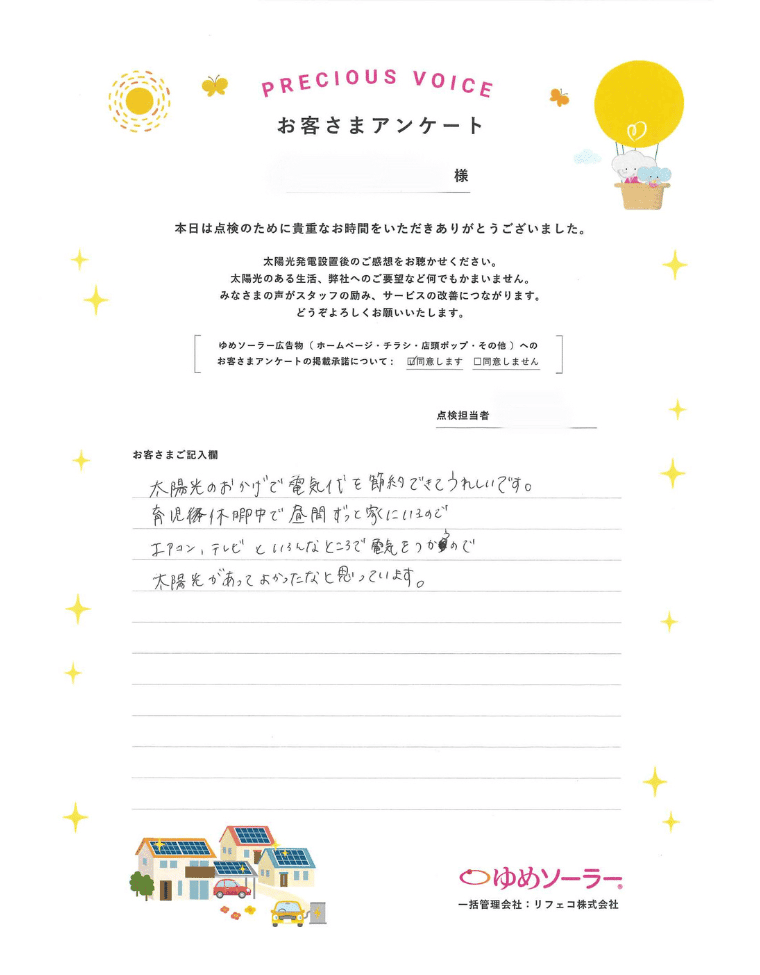 PRECIOUS VOICE
お客さまアンケート
様
本日は点検のために貴重なお時間をいただきありがとうございました。
太陽光発電設置後のご感想をお聴かせください。
太陽光のある生活、弊社へのご要望など何でもかまいません。
みなさまの声がスタッフの励み、サービスの改善につながります。
どうぞよろしくお願いいたします。
ゆめソーラー広告物（ ホームページ・チラシ・店頭ポップ・その他 ）への
お客さまアンケートの掲載承諾について： ☑同意します □同意しません
点検担当者
お客さまご記入欄
太陽光のおかげで電気代を節約できてうれしいです。
育児休暇中で昼間ずっと家にいるので
エアコン、テレビといろんなところで電気をつかうので
太陽光があってよかったなと思っています。
ゆめソーラー®
一括管理会社：リフェコ株式会社